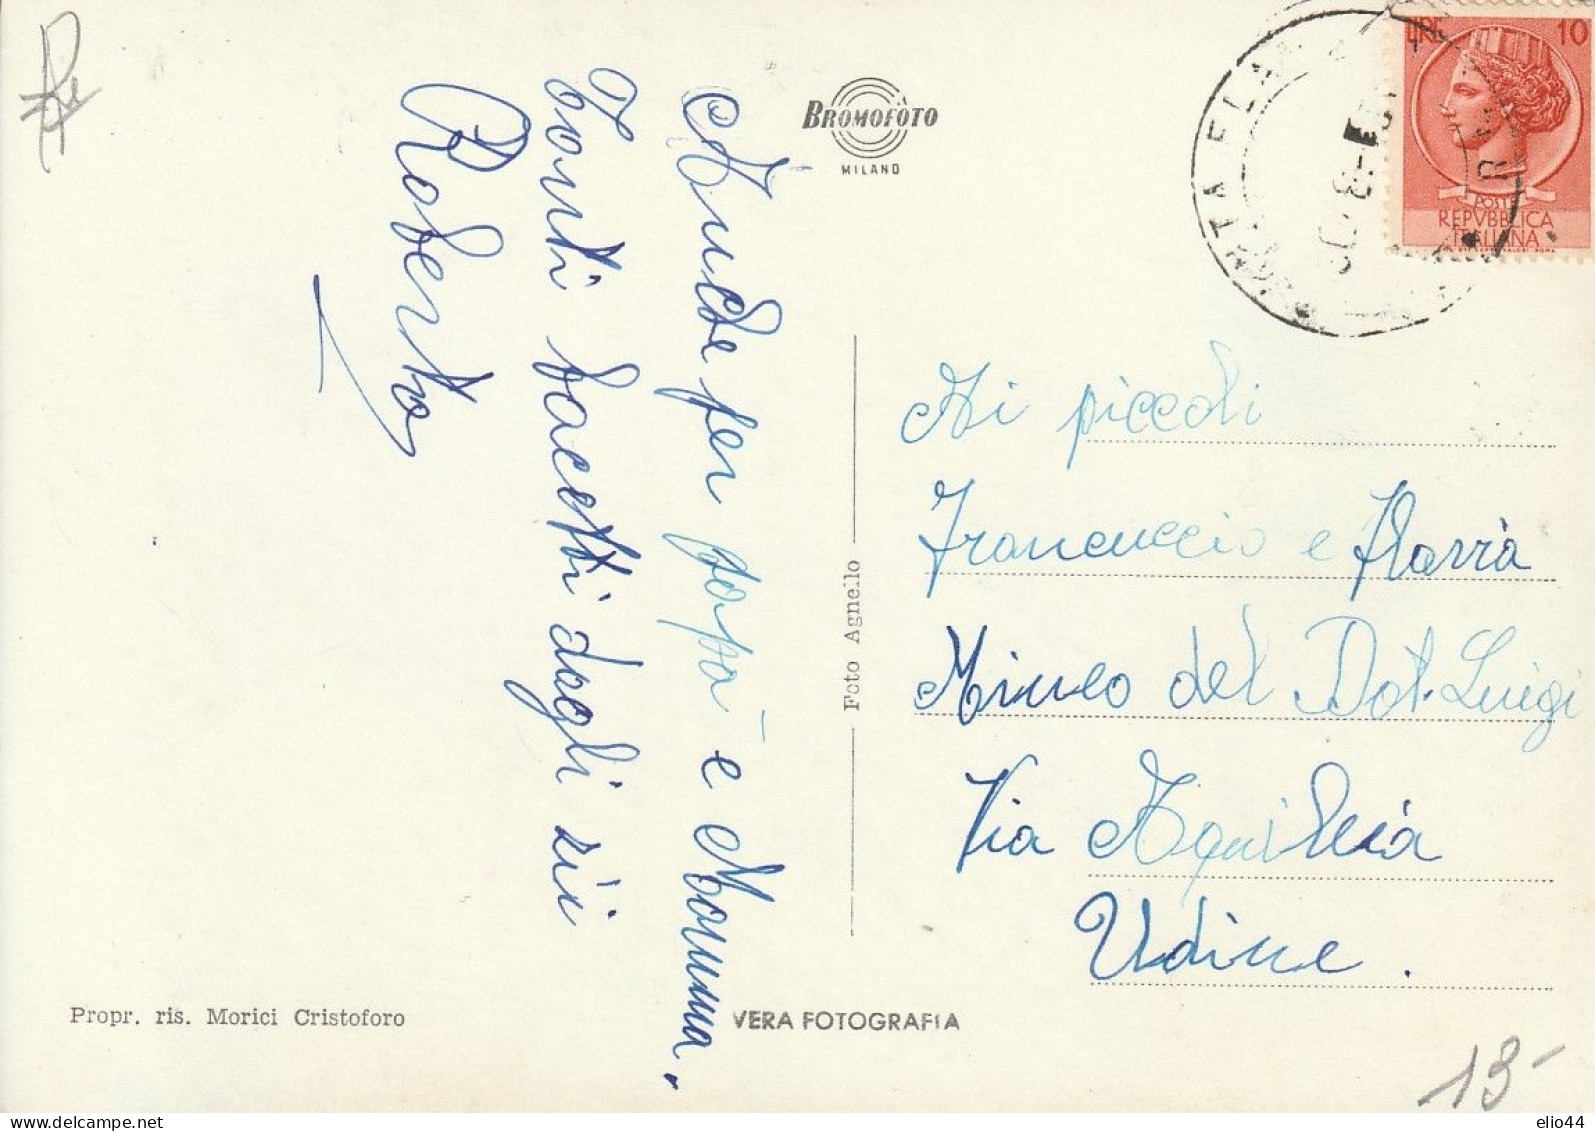 Anche per papà e Mamma.
Tanti bacetti dagli zii
Roberto
BROMOFOTO
MILANO
LIRE 10
POSTE
REPVBBLICA
ITALIANA
Ai piccoli
Francuccio e Flavia
Mineo del Dot. Luigi
Via Aquileia
Udine.
Foto Agnello
Propr. ris. Morici Cristoforo
VERA FOTOGRAFIA
13-
elio44